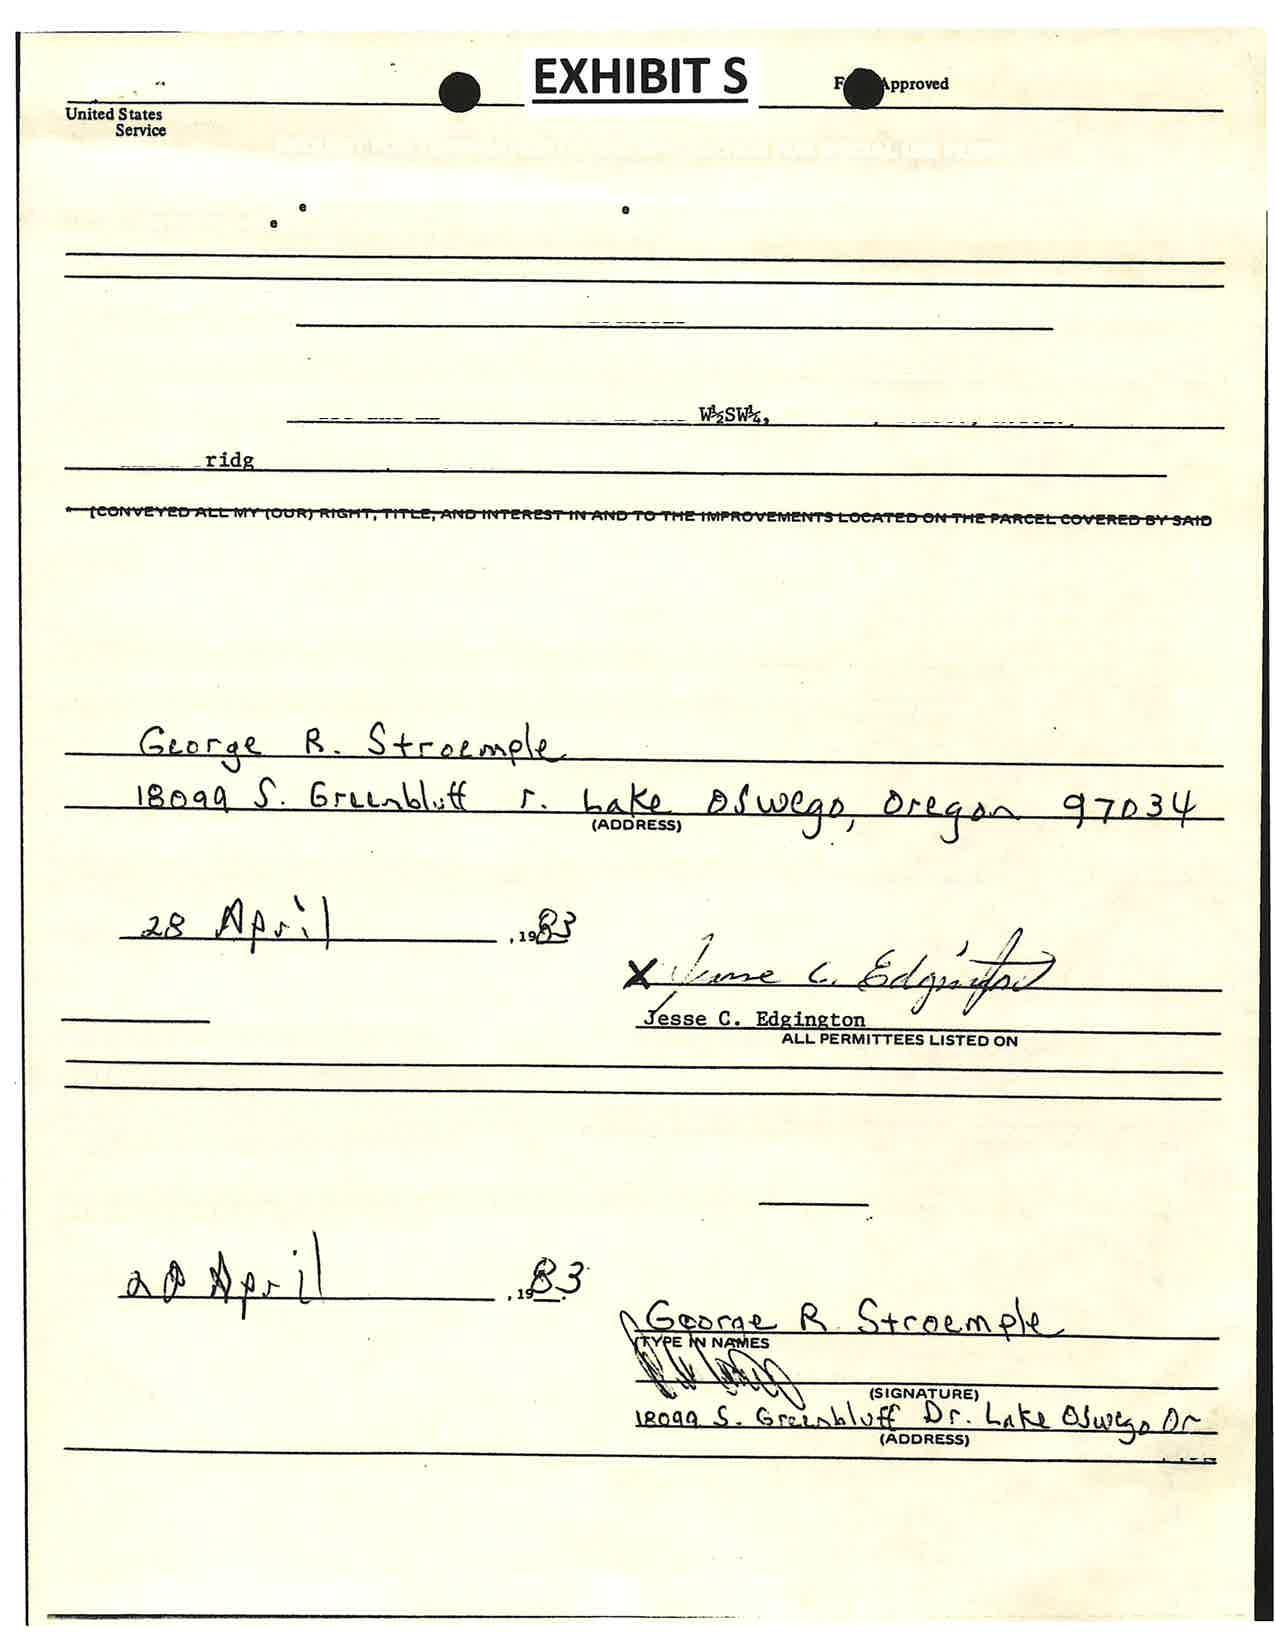 EXHIBIT S
F Approved
United States
Service
e
e
e
W½SW¼,
ridg
* (CONVEYED ALL MY (OUR) RIGHT, TITLE, AND INTEREST IN AND TO THE IMPROVEMENTS LOCATED ON THE PARCEL COVERED BY SAID
George R. Stroemple
18099 S. Greenbluff r. Lake Oswego, Oregon 97034
(ADDRESS)
28 April , 1983
X Jesse C. Edgington
Jesse C. Edgington
ALL PERMITTEES LISTED ON
28 April , 1983
George R. Stroemple
(TYPE IN NAMES
(SIGNATURE)
18099 S. Greenbluff Dr. Lake Oswego Or
(ADDRESS)